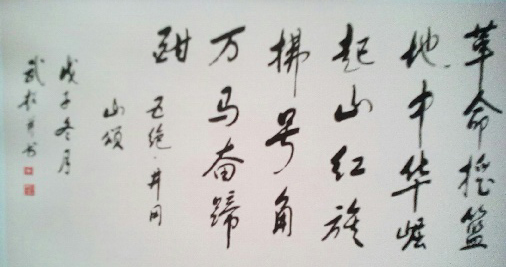 革命摇篮
地中华崛
起山红旗
拂号角
万马奋蹄
酣 五绝·井冈
山颂
戊子冬月
武书